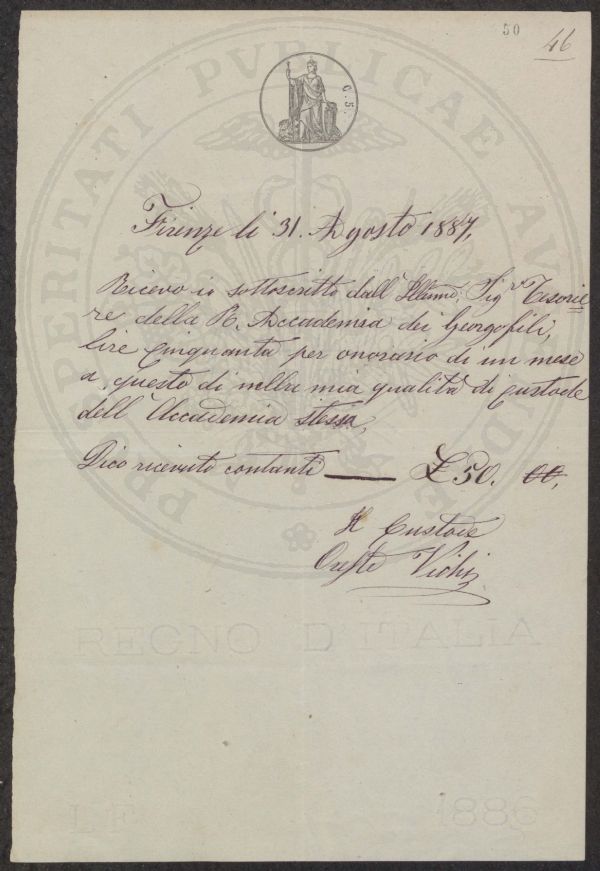 50
46
C. 5.
Firenze li 31. Agosto 1887,
Ricevo io sottoscritto dall' Illmo, Sigr Tesorie
re della R. Accademia dei Georgofili,
lire Cinquanta per onorario di un mese
a, questo di nella mia qualità di custode
dell' Accademia stessa,
Dico ricevute contanti — £ 50. 00,
Il Custode
Oreste Vichi
PROSPERITATI PVBLICAE AVGENDAE
REGNO D'ITALIA
LF 1886